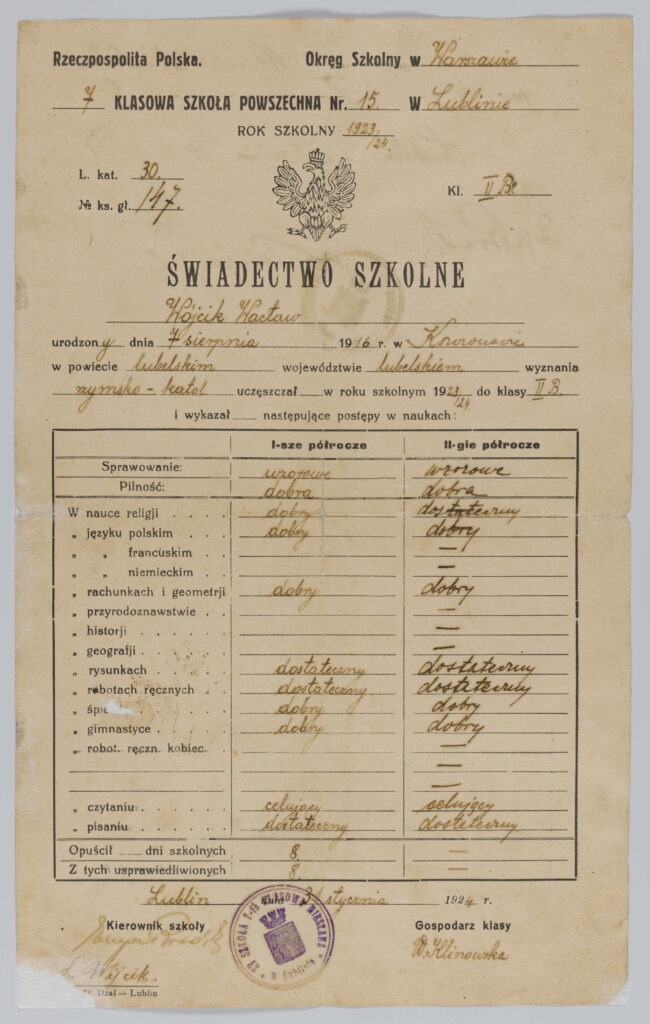 Rzeczpospolita Polska. Okręg Szkolny w Warszawie
7 KLASOWA SZKOŁA POWSZECHNA Nr. 15. W Lublinie
ROK SZKOLNY 1923/24.
L. kat. 30.
№ ks. gł. 147.
Kl. II B.
ŚWIADECTWO SZKOLNE
Wójcik Wacław
urodzony dnia 7 sierpnia 1916 r. w
w powiecie lubelskim województwie lubelskiem wyznania
rzymsko-katol uczęszczał w roku szkolnym 1923/24 do klasy II B.
i wykazał następujące postępy w naukach:
I-sze półrocze II-gie półrocze
Sprawowanie: wzorowe wzorowe
Pilność: dobra dobra
W nauce religji . . . . dobry dostateczny
„ języku polskim . . . dobry dobry
„ „ francuskim . . —
„ „ niemieckim . . —
„ rachunkach i geometrji dobry dobry
„ przyrodoznawstwie . . —
„ historji . . . . . —
„ geografji . . . . . —
„ rysunkach . . . . dostateczny dostateczny
„ robotach ręcznych . . dostateczny dostateczny
„ śpie . . . dobry dobry
„ gimnastyce . . . . dobry dobry
„ robot. ręczn. kobiec. —
—
—
„ czytaniu . . . . . celujący celujący
„ pisaniu . . . . . dostateczny dostateczny
Opuścił dni szkolnych 8. —
Z tych usprawiedliwionych 8. —
Lublin dnia 31 stycznia 1924 r.
Kierownik szkoły Gospodarz klasy
W. Klinowska
Wójcik.
St. Dżał — Lublin
XV SZKOŁA 7-IO KLASOWA MIEJSKA w Lublinie